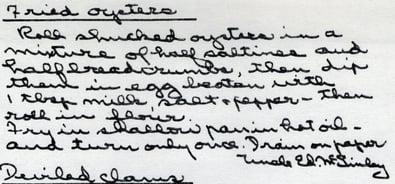 Fried oysters
Roll shucked oysters in a
mixture of half saltines and
half breadcrumbs, then dip
them in egg beaten with
1 tbsp milk, salt + pepper - then
roll in flour.
Fry in shallow pan in hot oil -
and turn only once. Drain on paper
Uncle Ed McGinley
Deviled clams